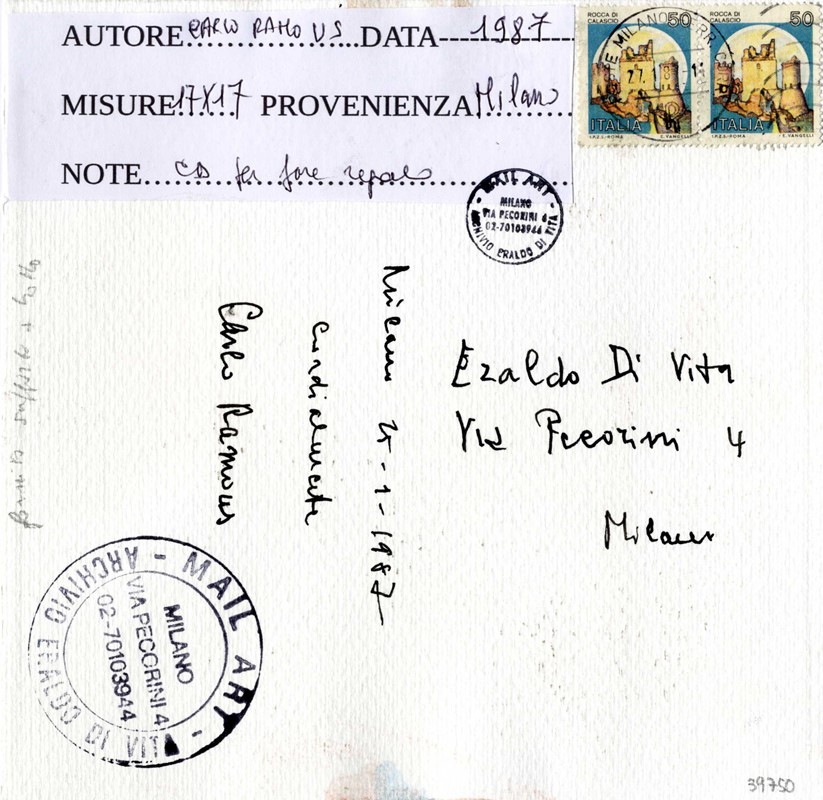 AUTORE CARLO RAMOUS DATA 1987
MISURE 17X17 PROVENIENZA Milano
NOTE CD per fare regalo
ROCCA DI CALASCIO 50
ITALIA
I.P.Z.S.-ROMA E. VANGELLI
ROCCA DI CALASCIO 50
ITALIA
I.P.Z.S.-ROMA E. VANGELLI
MILANO
MAIL ART
ARCHIVIO ERALDO DI VITA
MILANO
VIA PECORINI 4
02-70103944
Milano 25-1-1987
Cordialmente
Carlo Ramous
Eraldo Di Vita
Via Pecorini 4
Milano
MAIL ART - ARCHIVIO ERALDO DI VITA
MILANO
VIA PECORINI 4
02-70103944
39750